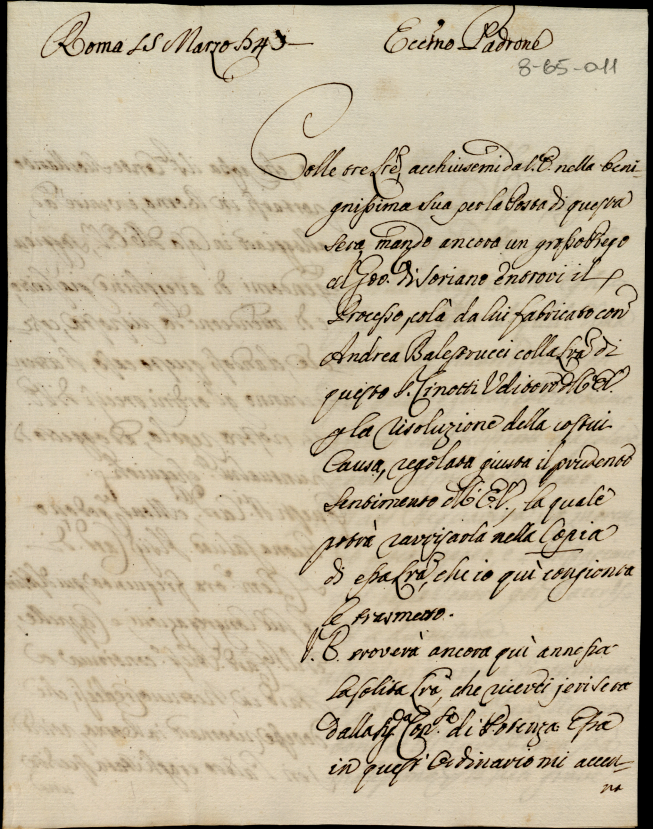 Roma 15 Marzo 1743 Eccmo Padrone
8-65-011
Colle tre Lre, acchiusemi da V.E. nella beni-
gnissima sua per la Posta di questa
sera, mando ancora un grosso Piego
al Gov. di Soriano entrovi il
Processo, colà da lui fabricato con
Andrea Balestrucci colla Lra di
questo S. Tinotti Uditore di V.E.
p la risoluzione della costui
Causa, regolata giusta il prudente
sentimento di V.E., la quale
potrà ravvisarla nella Copia
di essa Lra, che io quì congionta
le trasmetto.
V.E. troverà ancora quì annessa
la solita Lra, che ricevei jeri sera
dalla Sig.a Con.sa di Potenza. Essa
in quest' Ordinario mi accen-
na